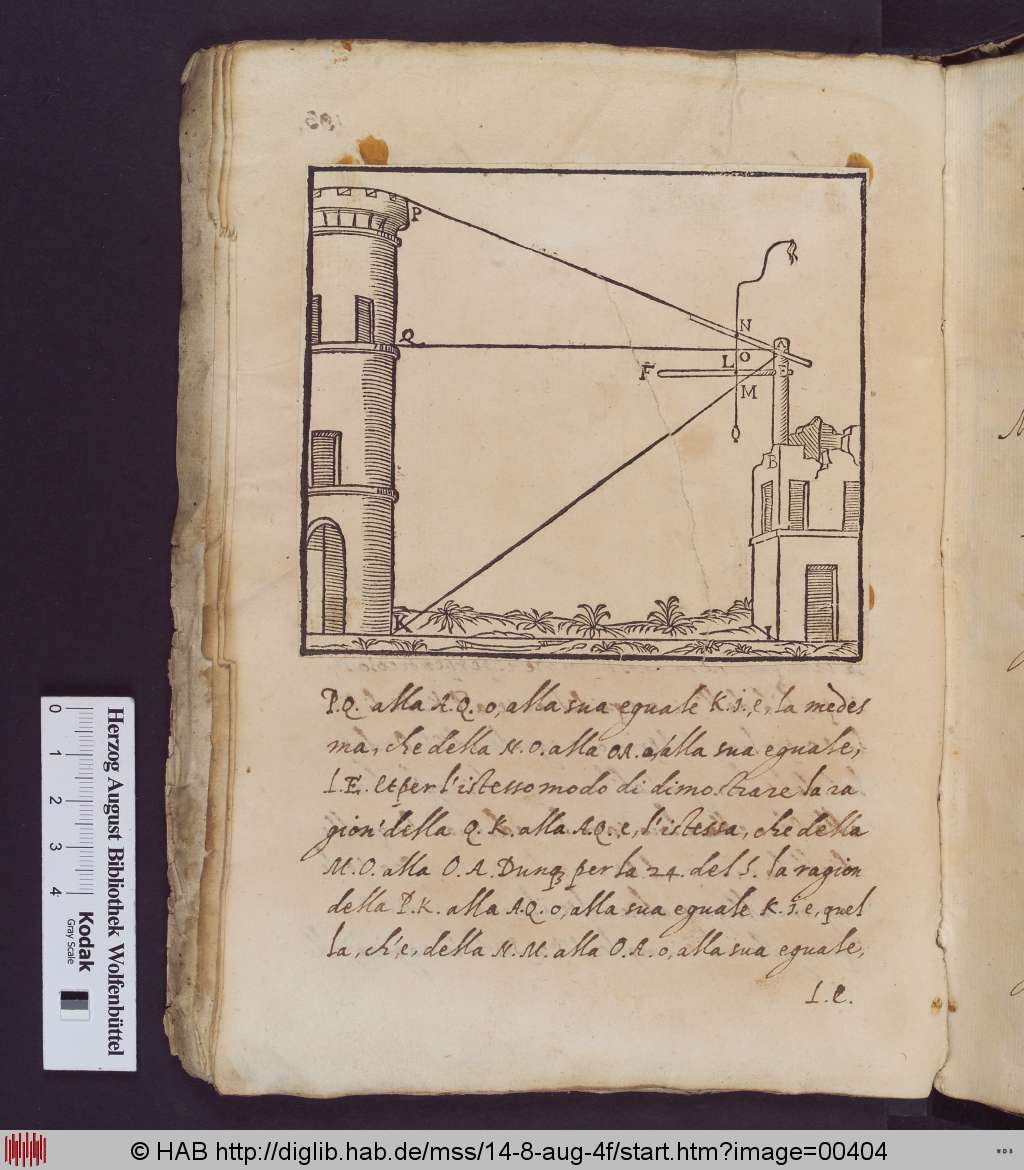 P
Q
N
O
A
L
F
M
B
K
I
P.Q. alla A.Q. o, alla sua eguale K.I. e, la medes
ma, che della N.O. alla OA. o, alla sua eguale,
L.E. et per l'istesso modo di dimostrare la ra
gion' della Q.K. alla A.Q. e, l'istessa, che della
M.O. alla O.A. Dunq; per la 24. del 5. la ragion
della P.K. alla A.Q. o, alla sua eguale K.I. e, quel
la, ch'e, della N.M. alla O.A. o, alla sua eguale,
L.E.
0 1 2 3 4
Herzog August Bibliothek Wolfenbüttel
Kodak
Gray Scale
© HAB http://diglib.hab.de/mss/14-8-aug-4f/start.htm?image=00404